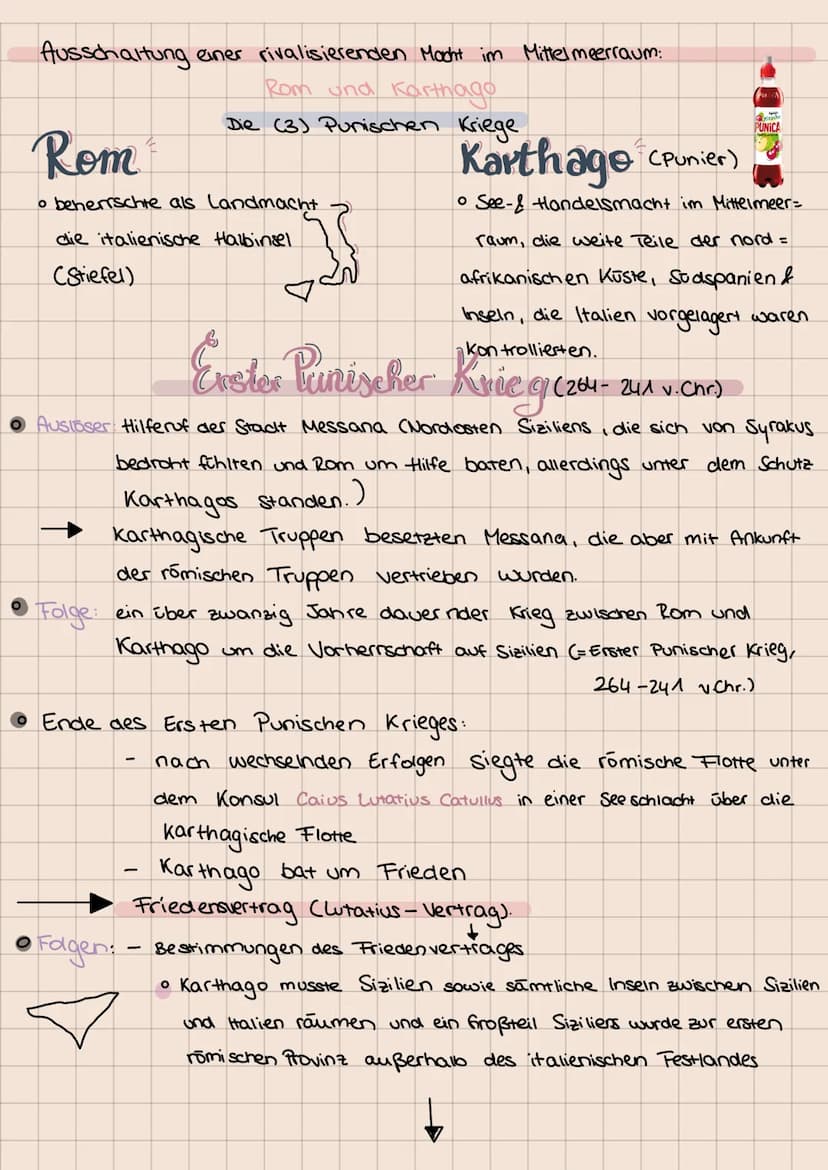 Ausschaltung einer rivalisierenden Macht im Mittelmeerraum:
Rom und Karthago
Die (3) Punischen Kriege
PUNICA
Rom
Karthago (Punier)
beherrschte als Landmacht
die italienische Halbinsel
(Stiefel)
See- & Handelsmacht im Mittelmeer=
raum, die weite Teile der nord=
afrikanischen Küste, Südspanien &
Inseln, die Italien vorgelagert waren
kontrollierten.
Erster Punischer Krieg (264- 241 v.Chr.)
Auslöser: Hilferuf der Stadt Messana (Nordosten Siziliens, die sich von Syrakus
bedroht fühlten und Rom um Hilfe baten, allerdings unter dem Schutz
Karthagos standen.)
→ Karthagische Truppen besetzten Messana, die aber mit Ankunft
der römischen Truppen vertrieben wurden.
Folge: ein über zwanzig Jahre dauernder Krieg zwischen Rom und
Karthago um die Vorherrschaft auf Sizilien (=Erster Punischer Krieg,
264-241 v.Chr.)
Ende des Ersten Punischen Krieges:
- nach wechselnden Erfolgen siegte die römische Flotte unter
dem Konsul Caius Lutatius Catullus in einer Seeschlacht über die
karthagische Flotte
- Karthago bat um Frieden
→ Friedensvertrag (Lutatius-Vertrag).
Folgen: - Bestimmungen des Friedenvertrages
Karthago musste Sizilien sowie sämtliche Inseln zwischen Sizilien
und Italien räumen und ein Großteil Siziliers wurde zur ersten
römischen Provinz außerhalb des italienischen Festlandes